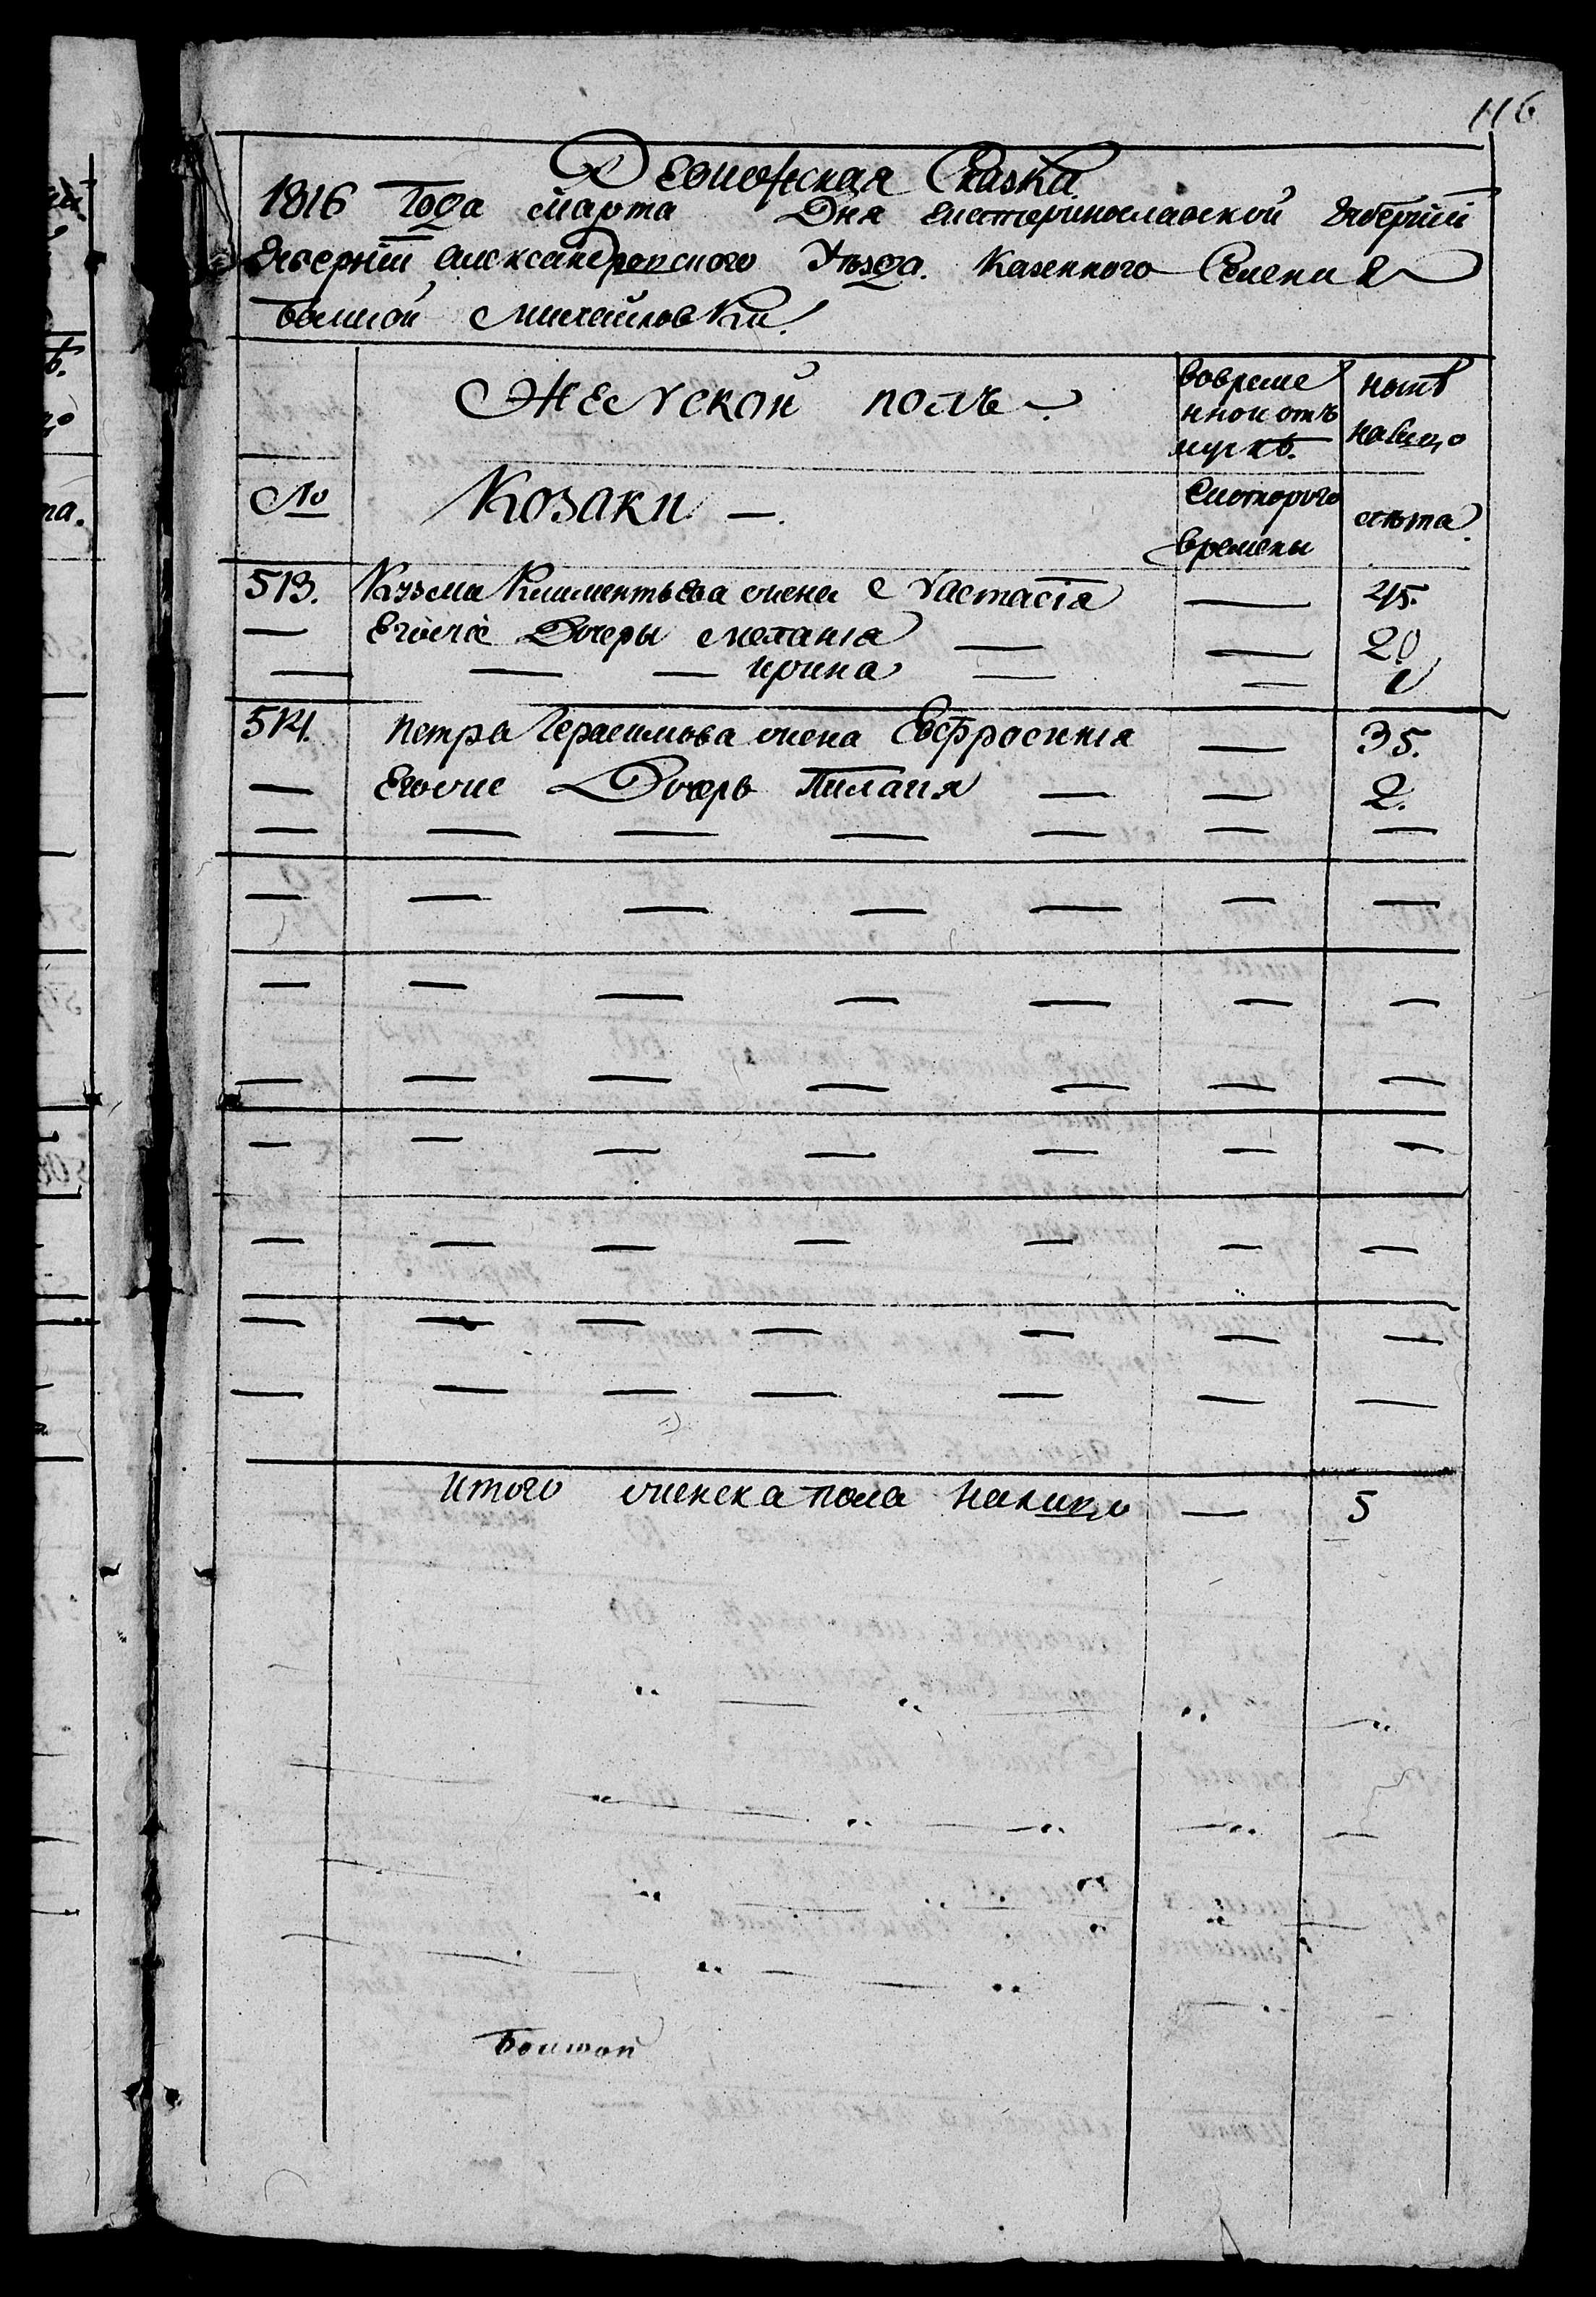 116
Ревижская Сказка
1816 Года марта Дня екатеринославской губерніи
Губерніи александровского Уѣзда. Казенного Селения
большой михайловки.
Женской полъ.
вовреме
нной отъ
лучкѣ.
нынѣ
налицо
№
Козаки —.
Скоторого
времены
лѣта.
513. Кузма Климентьева жена Настасія — 45.
— Егожѣ Дочеры меланія — — 20
— — — ирина — —
514. петра Герасимова жена Евфросинія — 35.
— Егожѣ Дочерь Пилагия — — 2.
итого женска пола налицо — 5
большой